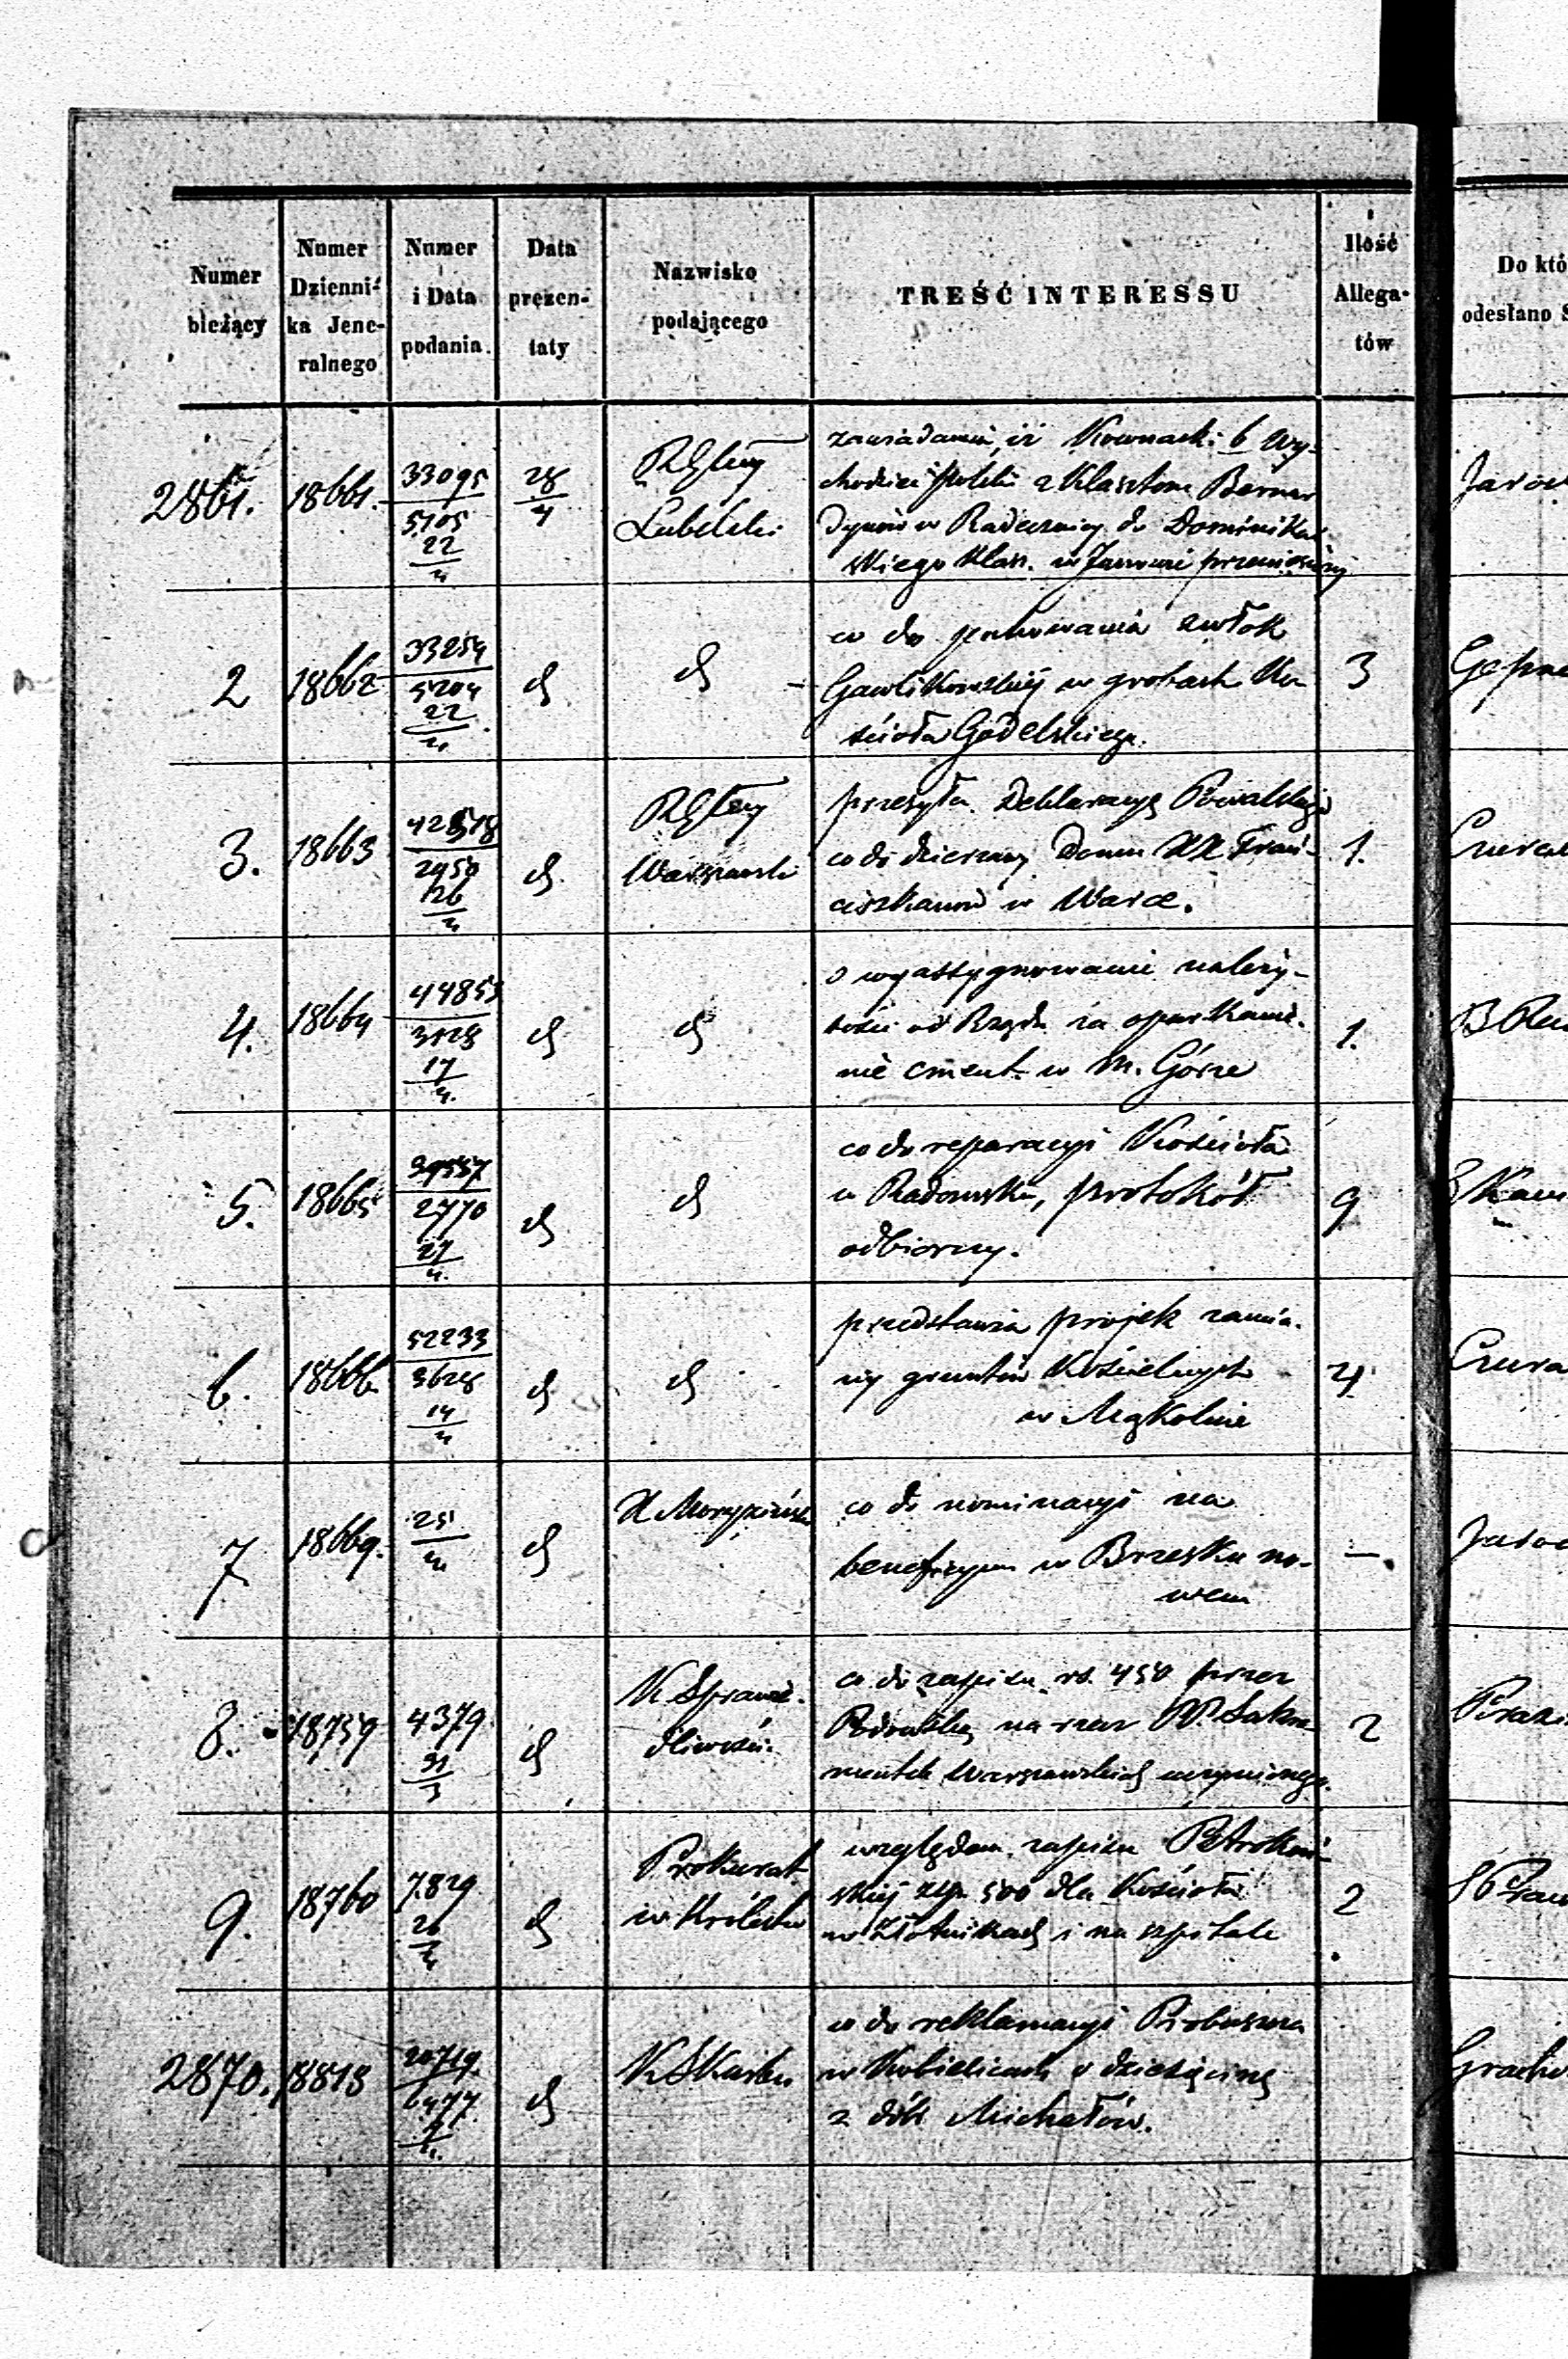 Numer
bieżący
Numer
Dzienni-
ka Jene-
ralnego
Numer
i Data
podania
Data
prezen-
taty
Nazwisko
podającego
TREŚĆ INTERESSU
Ilość
Allega-
tów
Do któ
odesłano S
2861.
18661.
33095
5105
22
4
28
4
Lubelski
zawiadamia, iż Kownacki b Wy-
chodźca Polski z Klasztoru Bernar
dynów w Radecznicy do Dominikań
skiego Klasz. w Janowie przeniesiony
2
18662
33254
5204
22
4
co do pochowania zwłok
Gawlikowskiej w grobach Ko
ścioła Godelskiego.
3
3.
18663
2950
26
4
Warszawski
przesyła Deklaracyę
co do dzierżawy Domu XX Fran-
ciszkanów w Warce.
1.
4.
18664
44853
3128
17
4.
o wyassygnowanie należy-
tości od Rządu za oparkanie-
nie cment. w m. Górze
1.
5.
18665
39557
2770
27
4.
co do reparacyi Kościoła
w Radomsku, protokół
odbiorczy.
9
6.
18666
52233
3628
14
4
przedstawia projek zamia-
ny gruntów Kościelnych
w Mąkolinie
4
7.
18669.
25
4
co do nominacyi na
beneficyum w Brzesku no-
wem
—.
8.
18759
4379
31
3
K Sprawie-
dliwości.
co do zapisu rs. 450 przez
na rzecz PP. Sakra-
mentek Warszawskich uczynionego.
2
9.
18760
7829
26
4
Prokurat.
w Królestw
względem zapisu Petrokoń-
skiej złp. 500 dla Kościoła
w Złotnikach i na szpitale
2
2870.
18813
20719.
6477
K Skarbu
co do reklamacyi Proboszcza
w Kobielicach o dziesięcinę
z dóbr Michałów.